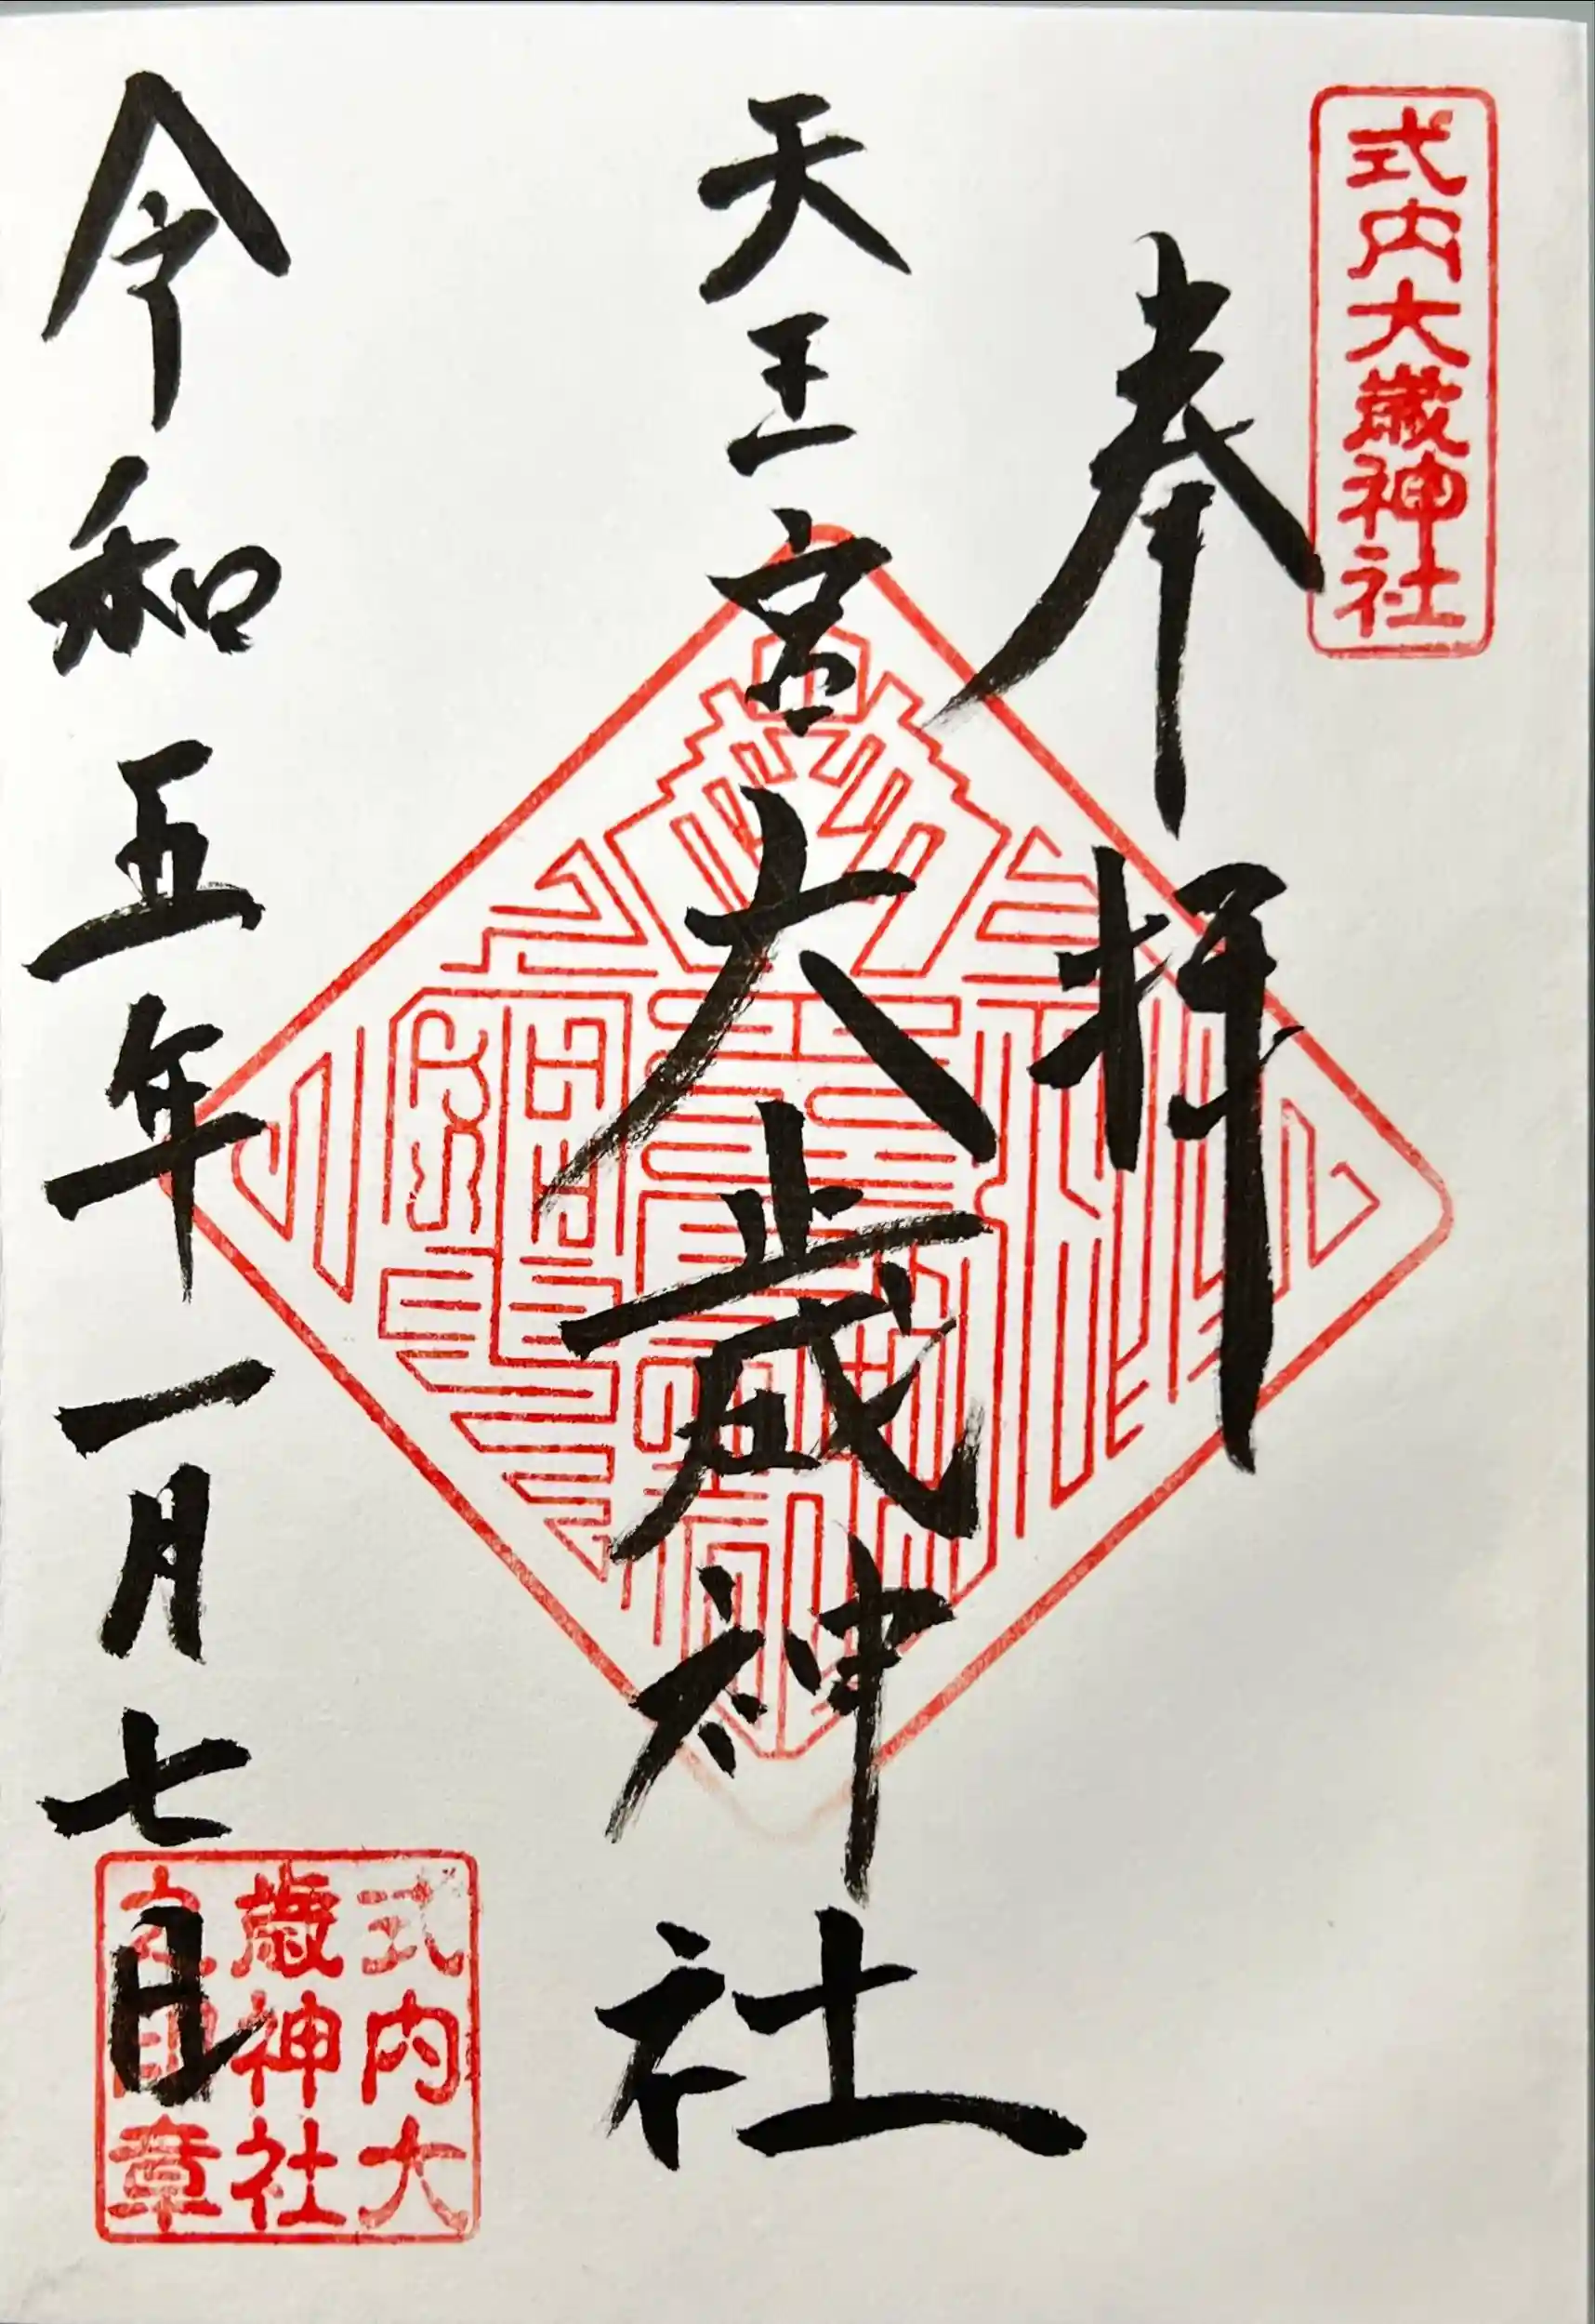 式内大歳神社
奉拝
天王宮大歳神社
令和五年一月七日
式内大
歳神社
章